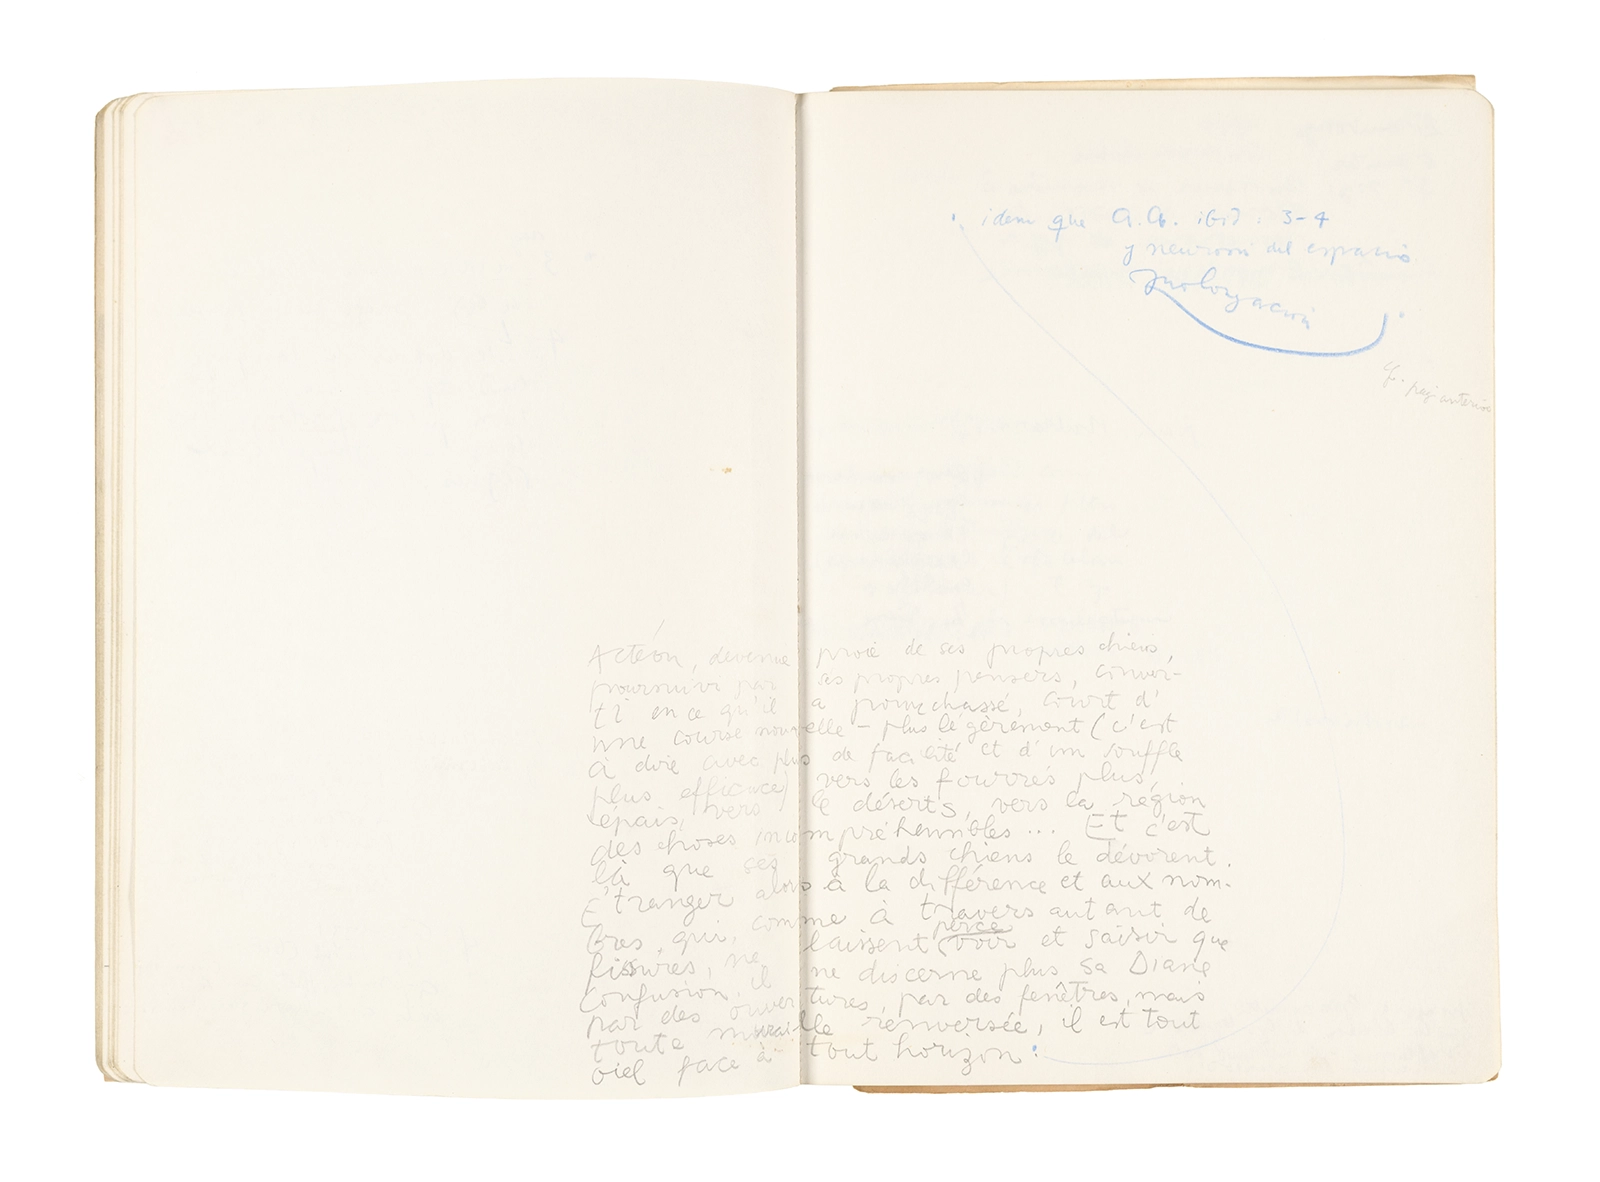 idem que A.A. ibid : 3-4
y neurosis del espacio
prolongación
cf. pag anterior
Actéon, devenue proie de ses propres chiens,
poursuivi par ses propres pensers, conver-
ti en ce qu'il a pourchassé, court d'
une course nouvelle – plus légèrement (c'est
à dire avec plus de facilité et d'un souffle
plus efficace) vers les fourrés plus
épais, vers le déserts, vers la région
des choses incompréhensibles ... Et c'est
là que ses grands chiens le dévorent.
Étranger alors à la différence et aux nom-
bres, qui, comme à travers autant de
fissures, ne laissent (voir percé et saisir que
confusion, il ne discerne plus sa Diane
par des ouvertures, par des fenêtres, mais
toute muraille renversée, il est tout
oiel face à tout horizon.